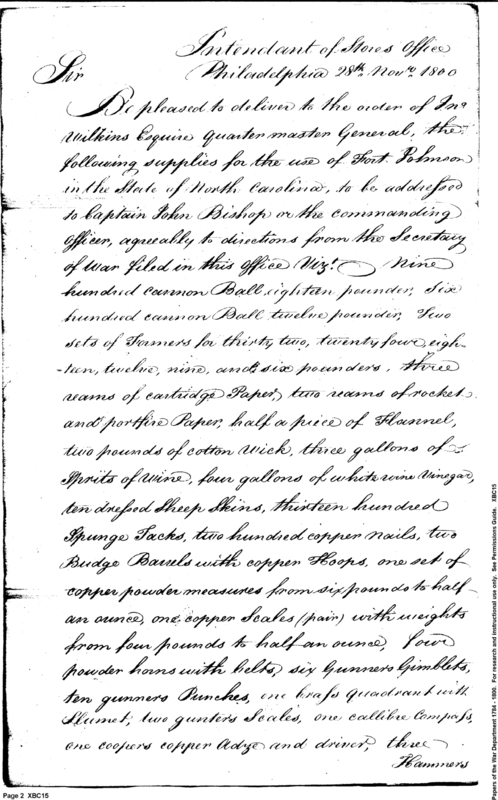 Intendant of Stores Office
Philadelphia 28th. Novr. 1800
Sir
Be pleased to deliver to the order of Jno
Wilkins Esquire Quarter master General, the
following supplies for the use of Fort Johnson
in the State of North Carolina, to be addressed
to Captain John Bishop or the commanding
Officer, agreeably to directions from the Secretary
of War filed in this Office Vizt. Nine
hundred cannon Ball eighteen pounder, Six
hundred cannon Ball twelve pounder, Two
sets of Formers for thirty two, twenty four, eigh-
-teen, twelve, nine, and six pounders, three
reams of cartridge Paper, two reams of rocket
and portfire Paper, half a piece of Flannel,
two pounds of cotton Wick, three gallons of
Sprits of Wine, four gallons of white wine Vinegar,
ten dressed Sheep Skins, thirteen hundred
Spunge Tacks, two hundred copper nails, two
Budge Barrels with copper Hoops, one set of
copper powder measures from six pounds to half-
an ounce, one copper Scales (pair) with weights
from four pounds to half an ounce, four
powder horns with belts, six Gunners Gimblets,
ten gunners Punches, one brass Quadrant with
Plumet, two gunters Scales, one callibre Compass,
one coopers copper Adze and driver, three
Hammers
Page 2 XBC15
Papers of the War Department 1784 - 1800. For research and instructional use only. See Permissions Guide. XBC15